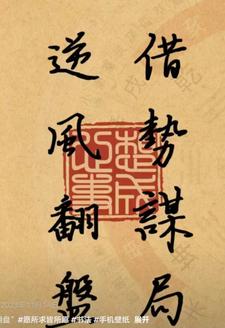 借勢謀局
逆風翻盤
自” #愿所求皆所愿 #书法 #手机壁纸 展开